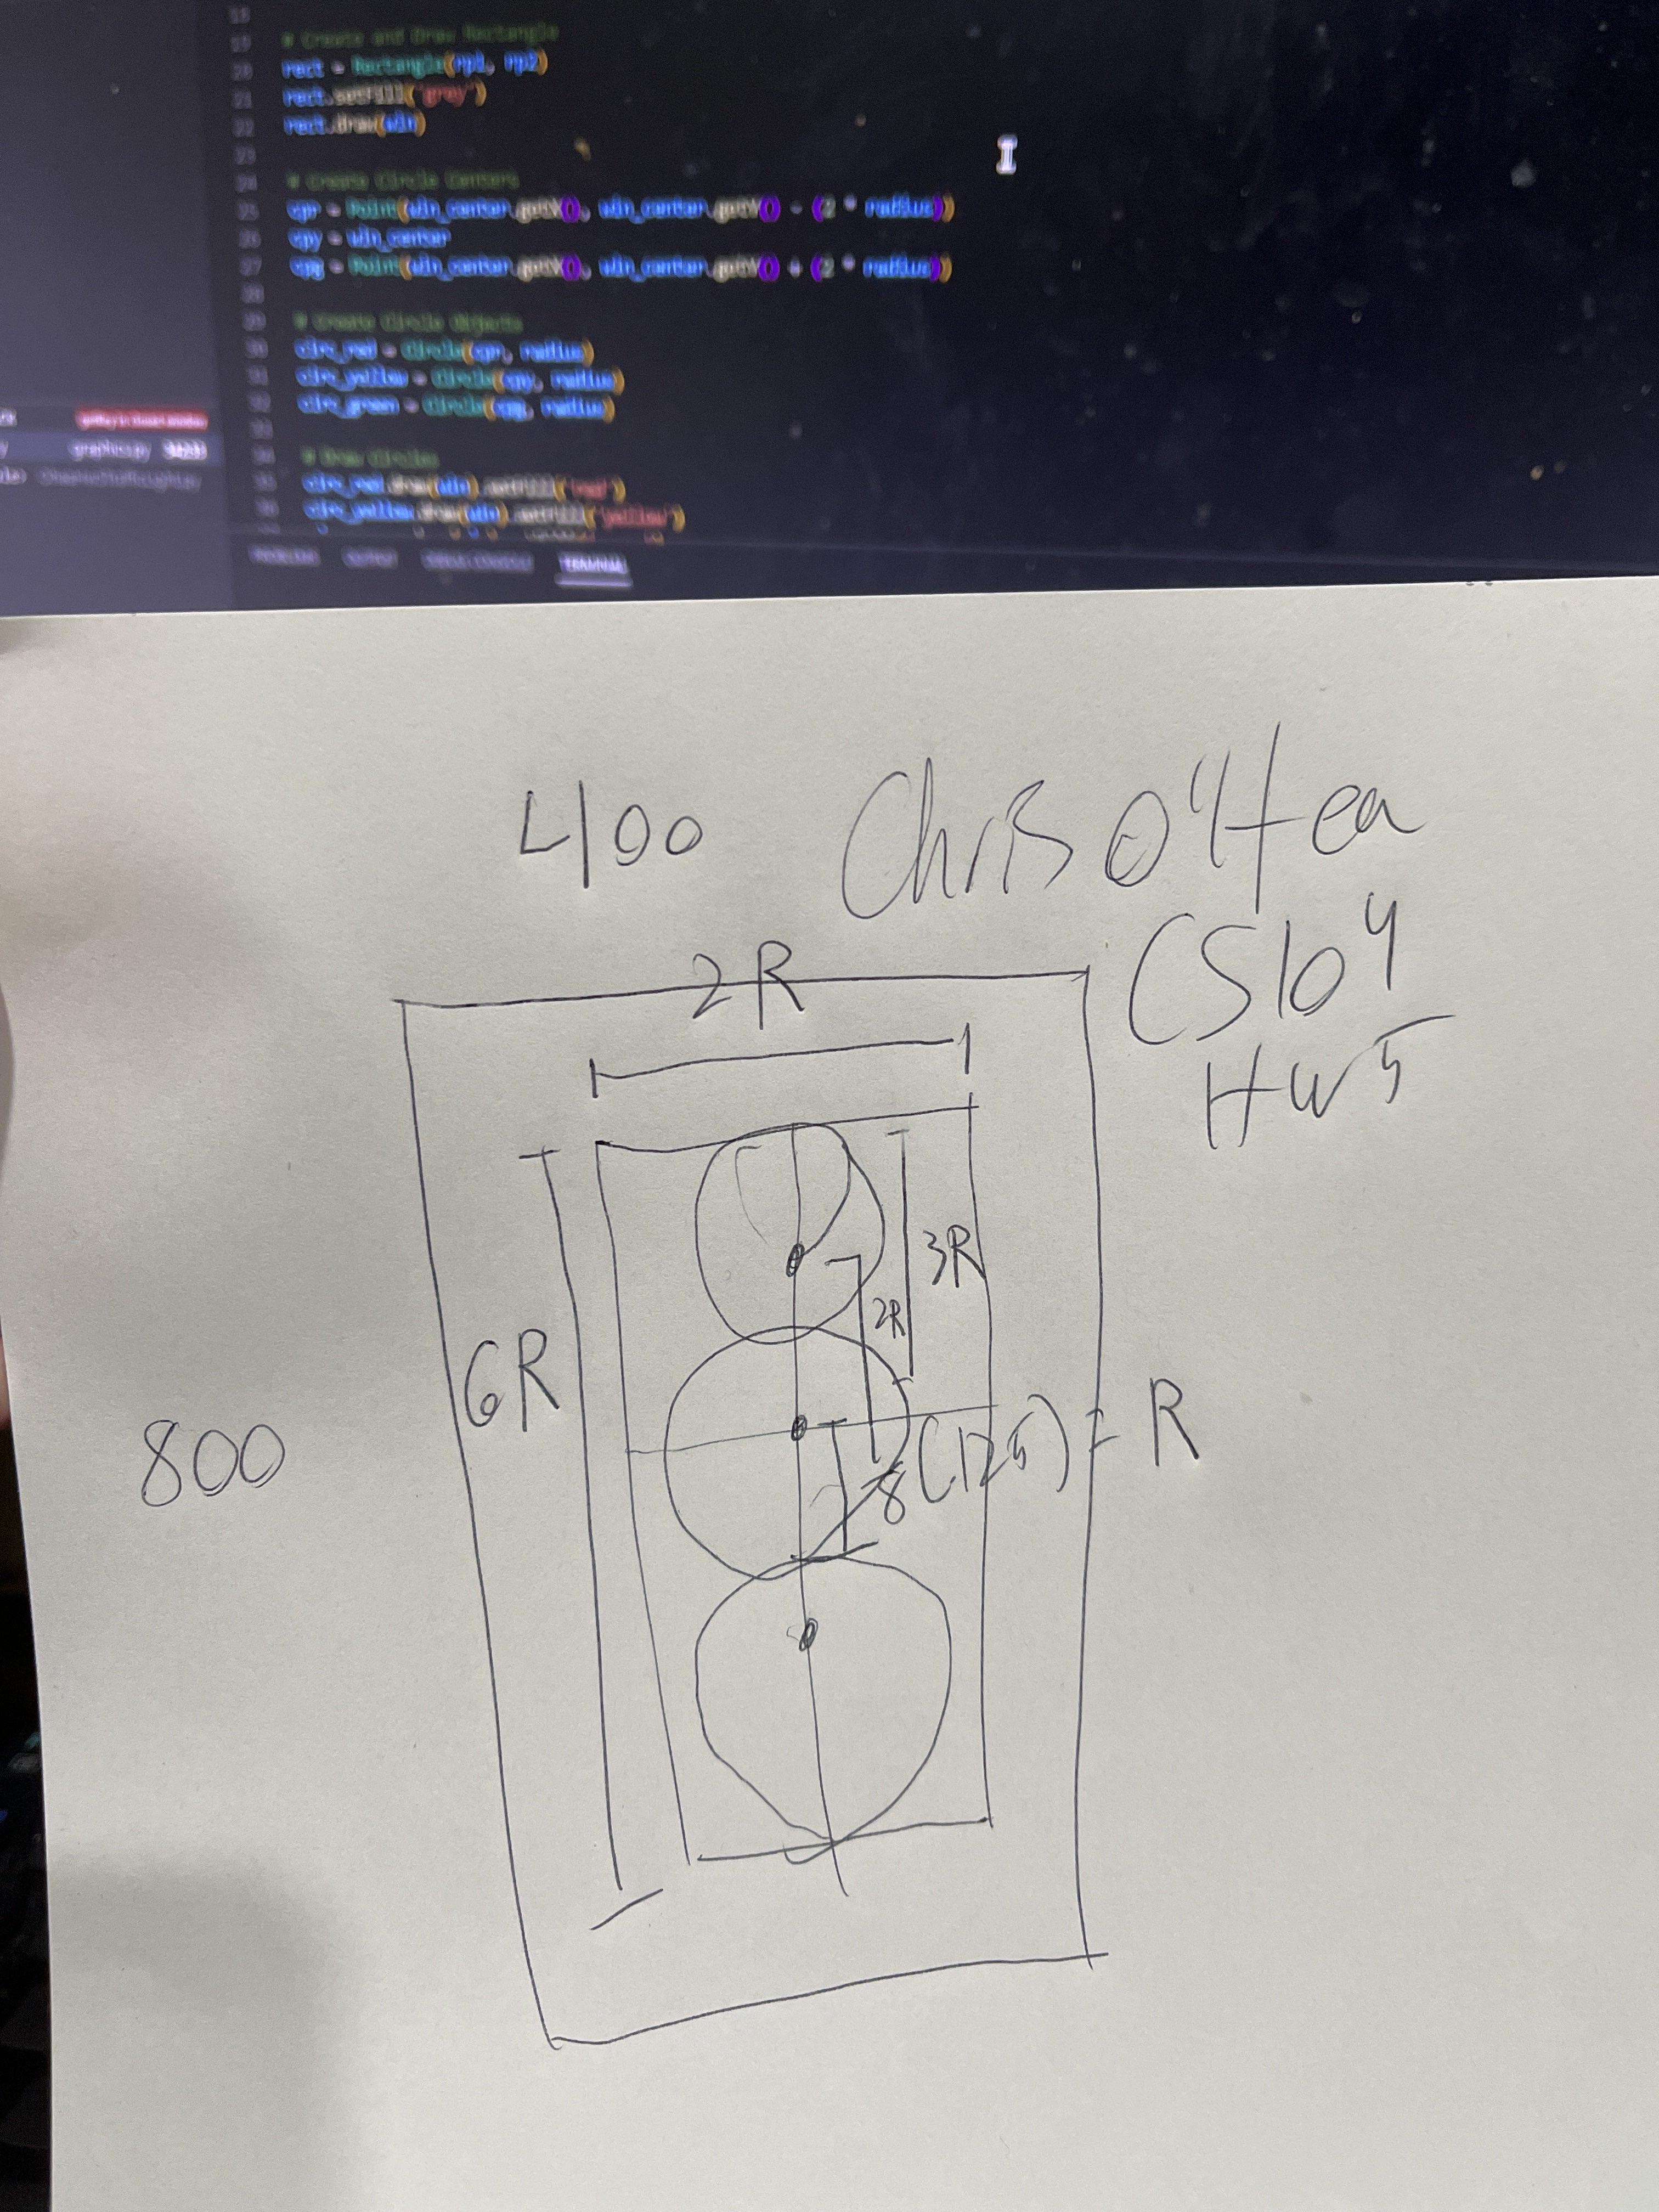 18
19 # Create and Draw Rectangle
20 rect = Rectangle(rp1, rp2)
21 rect.setFill('grey')
22 rect.draw(win)
23
24 # Create Circle Centers
25 cpr = Point(win_center.getX(), win_center.getY() - (2 * radius))
26 cpy = win_center
27 cpg = Point(win_center.getX(), win_center.getY() + (2 * radius))
28
29 # Create Circle Objects
30 circ_red = Circle(cpr, radius)
31 circ_yellow = Circle(cpy, radius)
32 circ_green = Circle(cpg, radius)
33
34 # Draw Circles
35 circ_red.draw(win).setFill('red')
36 circ_yellow.draw(win).setFill('yellow')
graphics.py
PROBLEMS OUTPUT DEBUG CONSOLE TERMINAL
400 Chris O'Hea
CS104
HW5
2R
3R
2R
6R
800
8(.125) = R